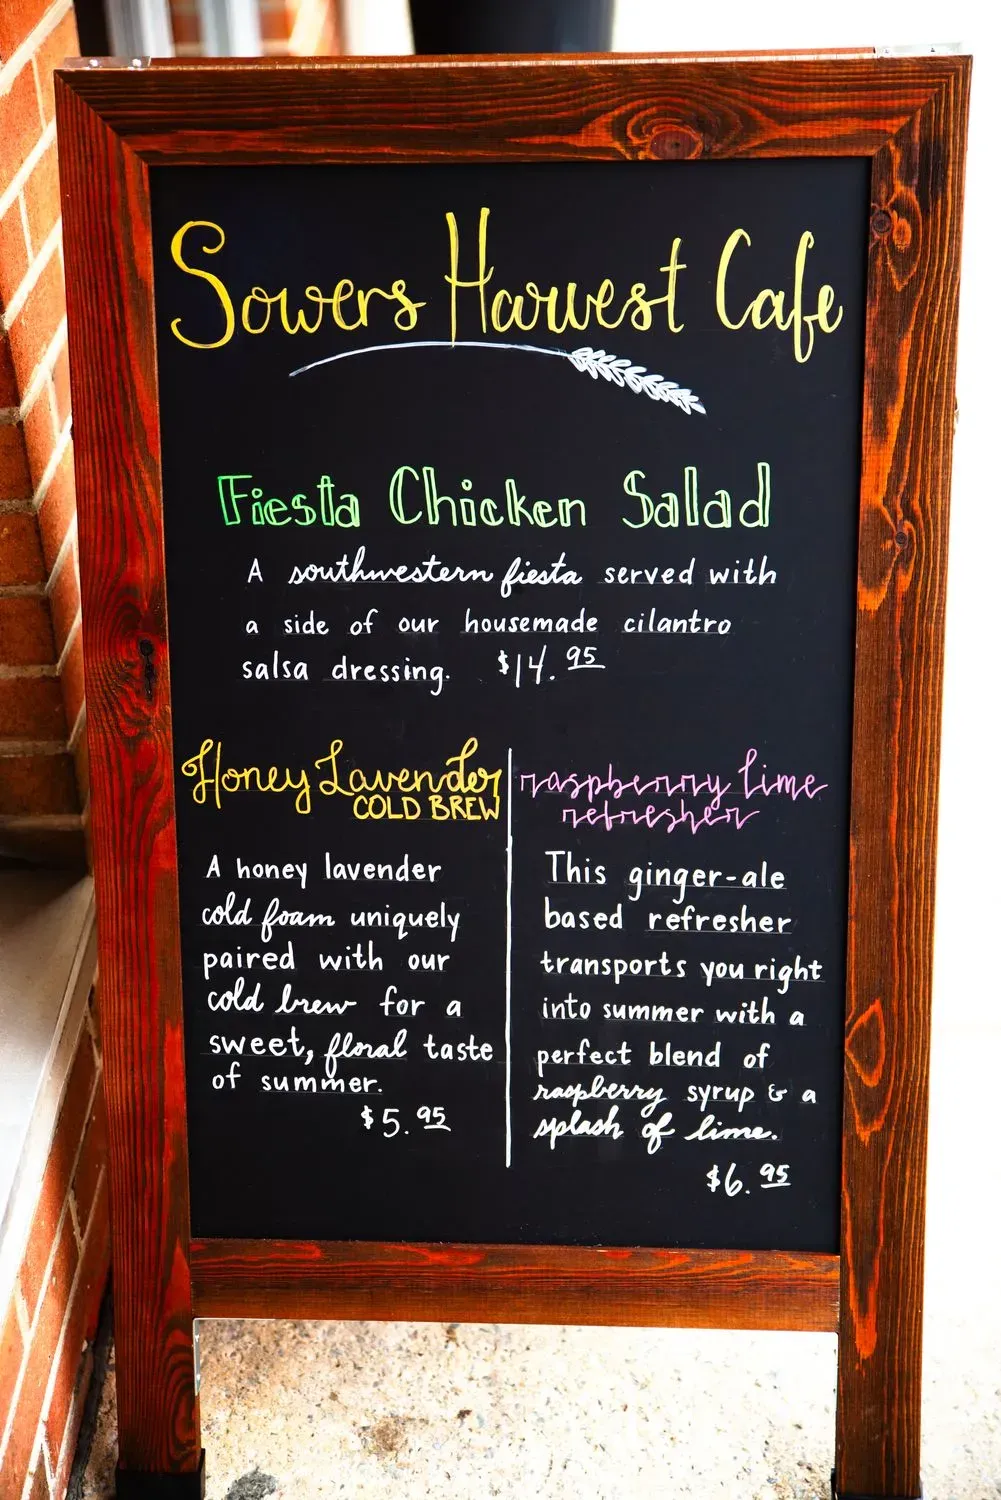 Sowers Harvest Cafe
Fiesta Chicken Salad
A southwestern fiesta served with
a side of our housemade cilantro
salsa dressing. $14.95
Honey Lavender
COLD BREW
A honey lavender
cold foam uniquely
paired with our
cold brew for a
sweet, floral taste
of summer.
$5.95
raspberry lime
refresher
This ginger-ale
based refresher
transports you right
into summer with a
perfect blend of
raspberry syrup & a
splash of lime.
$6.95